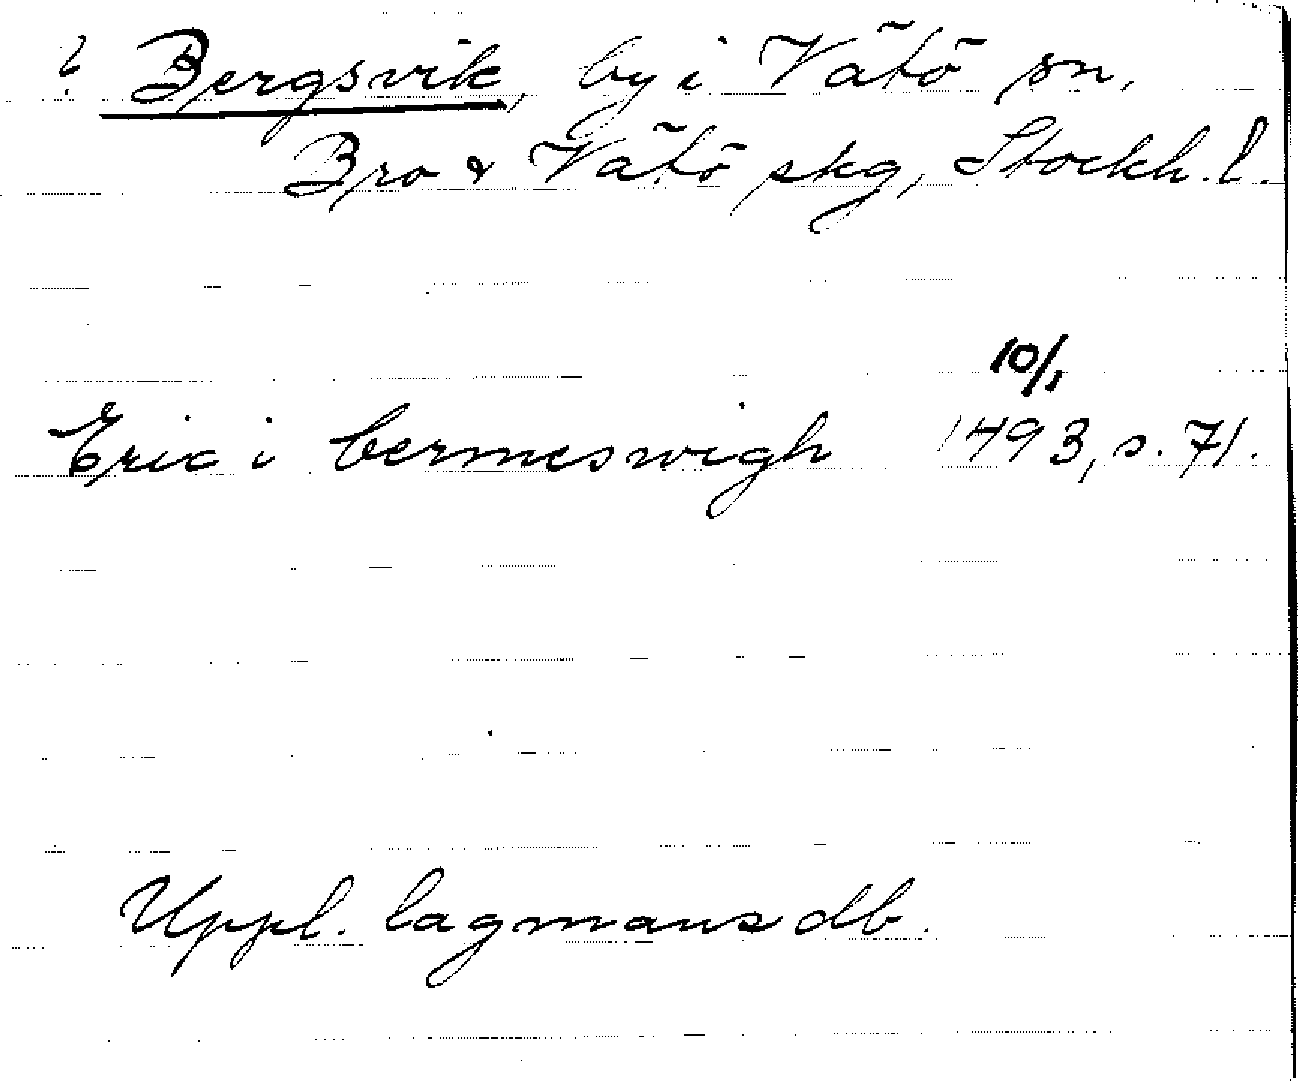 ? Bergsvik, by i Vätö sn,
Bro & Vätö skg, Stockh. l.
10/1
Eric i bermeswigh 1493, s. 71.
Uppl. lagmansdb.